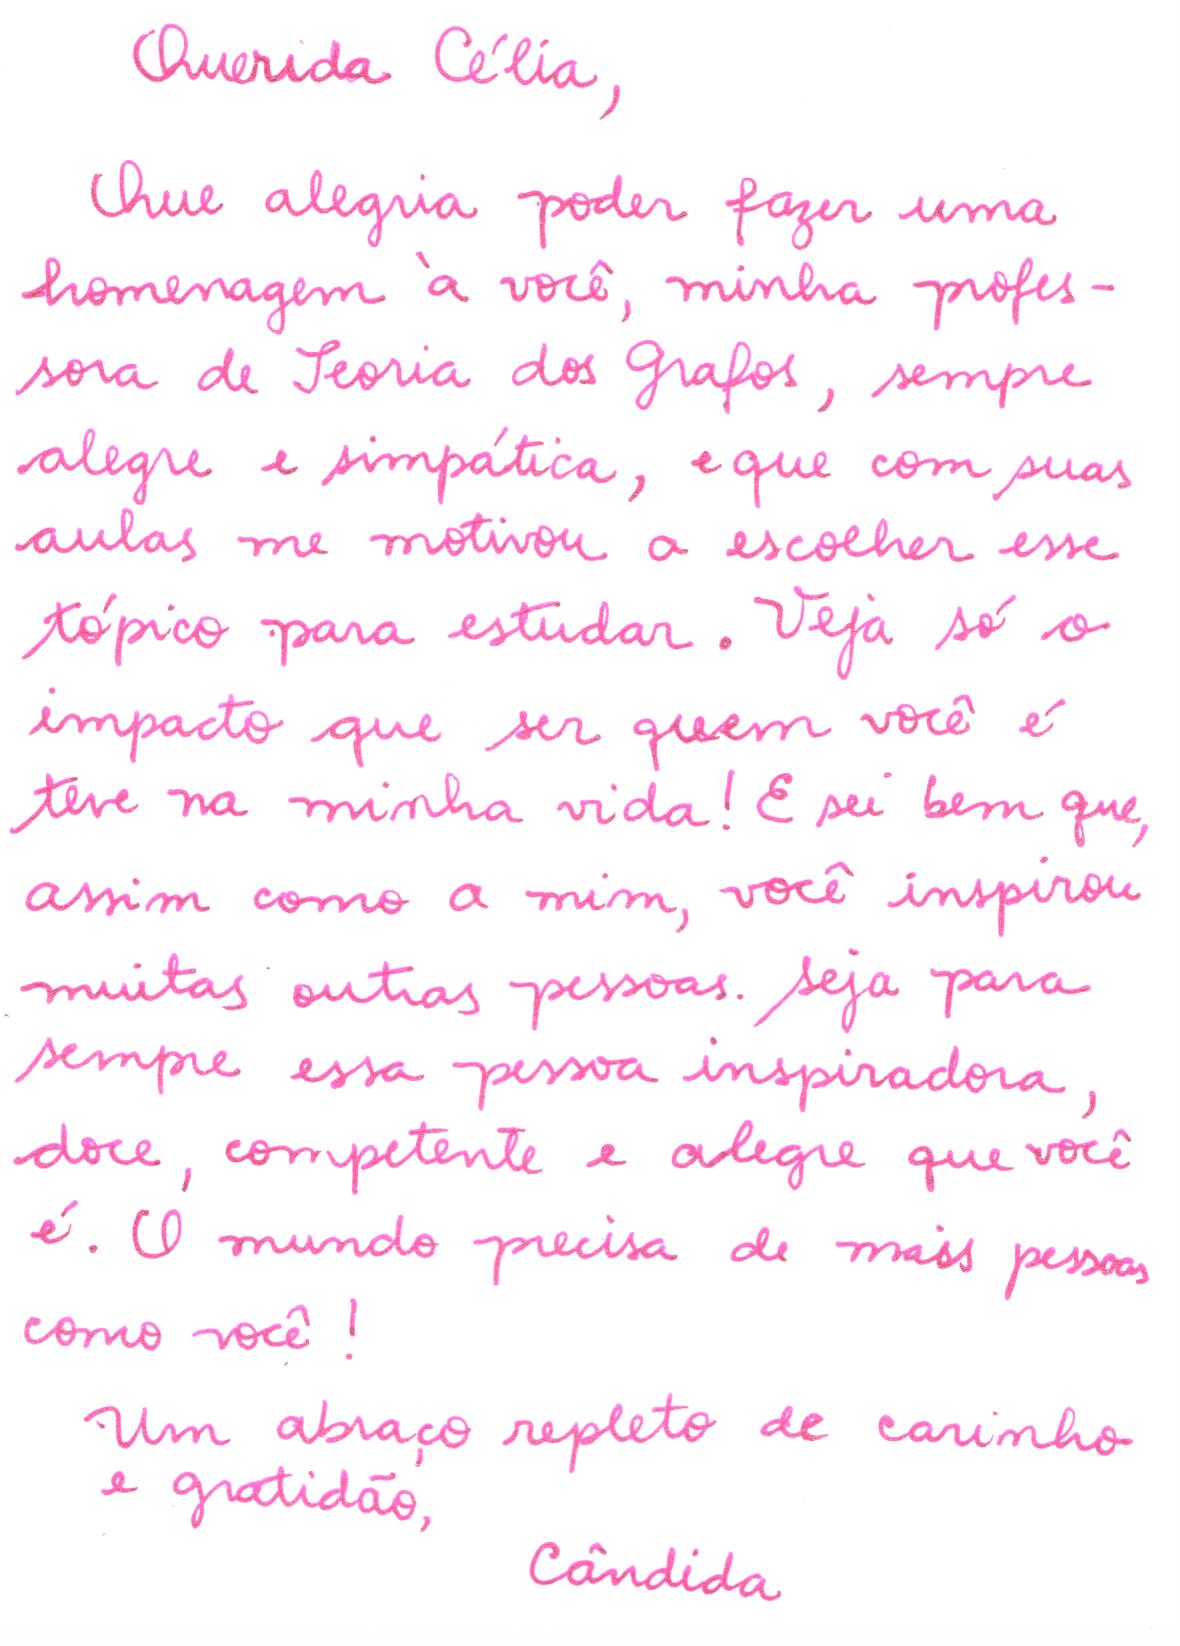 Querida Célia,
Que alegria poder fazer uma
homenagem à você, minha profes-
sora de Teoria dos Grafos, sempre
alegre e simpática, e que com suas
aulas me motivou a escolher esse
tópico para estudar. Veja só o
impacto que ser quem você é
teve na minha vida! E sei bem que,
assim como a mim, você inspirou
muitas outras pessoas. Seja para
sempre essa pessoa inspiradora,
doce, competente e alegre que você
é. O mundo precisa de mais pessoas
como você!
Um abraço repleto de carinho
e gratidão,
Cândida